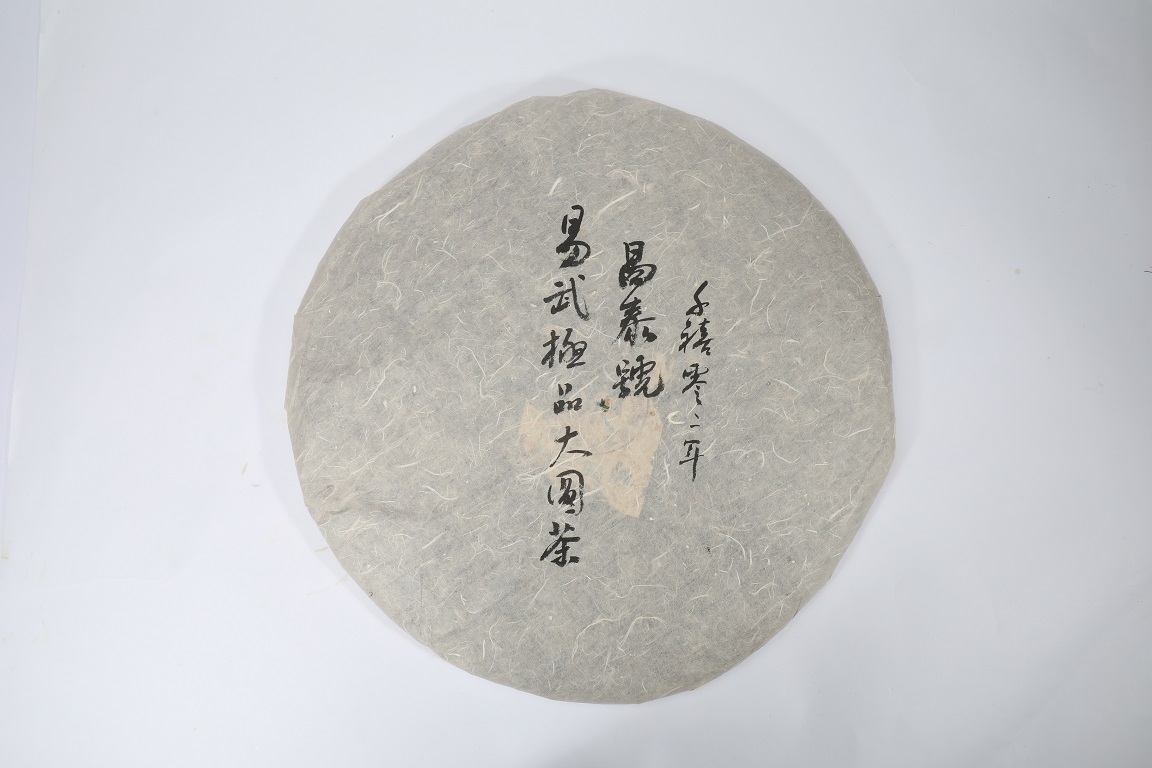 千禧零二年
昌泰號
易武極品大圓茶